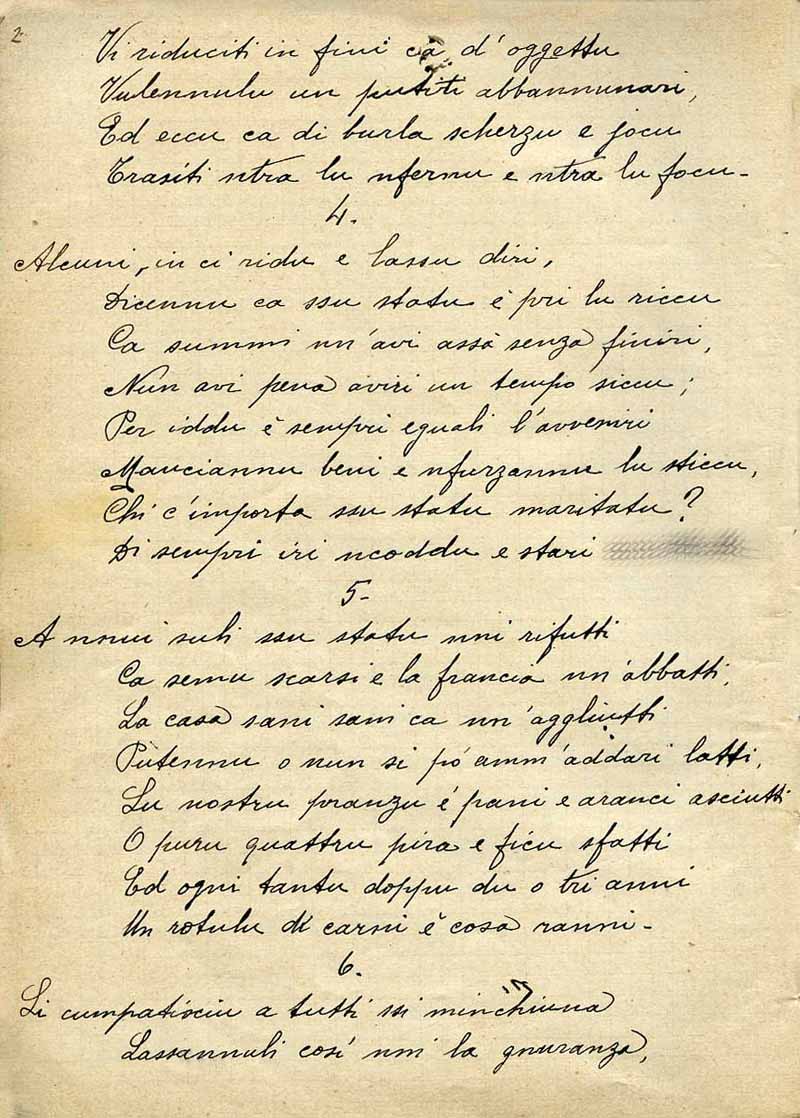 2
Vi riduciti in fini cà d'oggettu
Vulennulu un putiti abbannunari,
Ed eccu ca di burla scherzu e jocu
Trasíti ntra lu nfernu e ntra lu focu-
4.
Alcuni, in ci ridu e lassu diri,
Dicennu ca ssu statu è pri lu riccu
Ca summi un'avi assà senza finiri,
Nun avi pena aviri un tempo siccu;
Per iddu è sempri eguali l'avveniri
Manciannu beni e nfurzannu lu sticcu,
Chi c'importa ssu statu maritatu?
Di sempri iri ncoddu e stari
5.-
A nnui suli ssu statu nni rifutti
Ca semu scarsi e la francia un'abbatti,
La casa sani sani ca un'agghiutti
Putennu o nun si pó amm'addari latti,
Lu nostru pranzu é pani e aranci asciutti
O puru quattru pira e ficu sfatti
Ed ogni tantu doppu du o tri anni
Un rotulu di carni è cosa ranni-
6.
Li cumpatisciu a tutti ssi minchiuna
Lassannuli cosí nni la gnuranza,